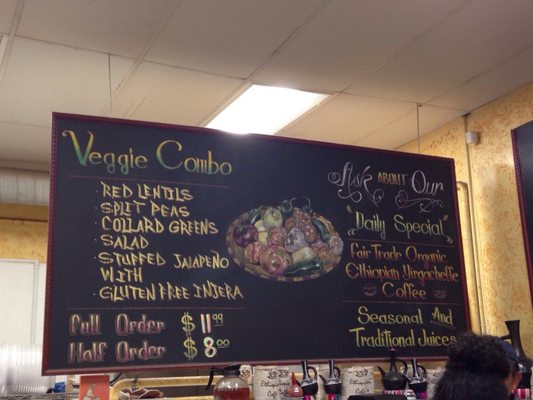 Veggie Combo
· RED LENTILS
· SPLIT PEAS
· COLLARD GREENS
· SALAD
· STUFFED JALAPEÑO
WITH
· GLUTEN FREE INJERA
Full Order $11.99
Half Order $8.00
Ask ABOUT Our
"Daily Special"
Fair Trade Organic
Ethiopian Yirgacheffe
Coffee
Seasonal And
Traditional Juices